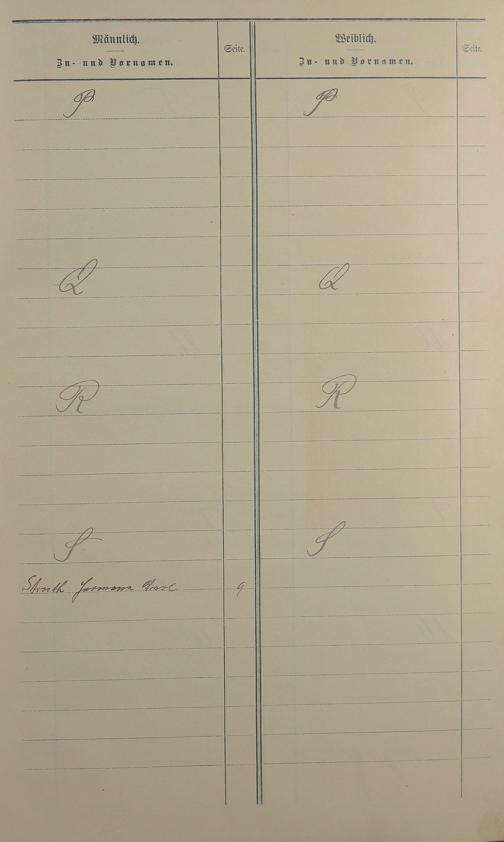 Männlich.
Zu- und Vornamen.
Seite.
Weiblich.
Zu- und Vornamen.
Seite.
P
P
Q
Q
R
R
S
S
Struth Hermann 9